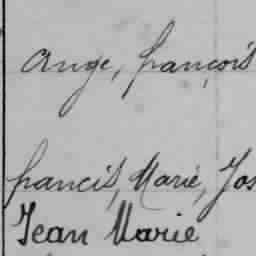 Ange, françois
francis, Marie, Jos
Jean Marie